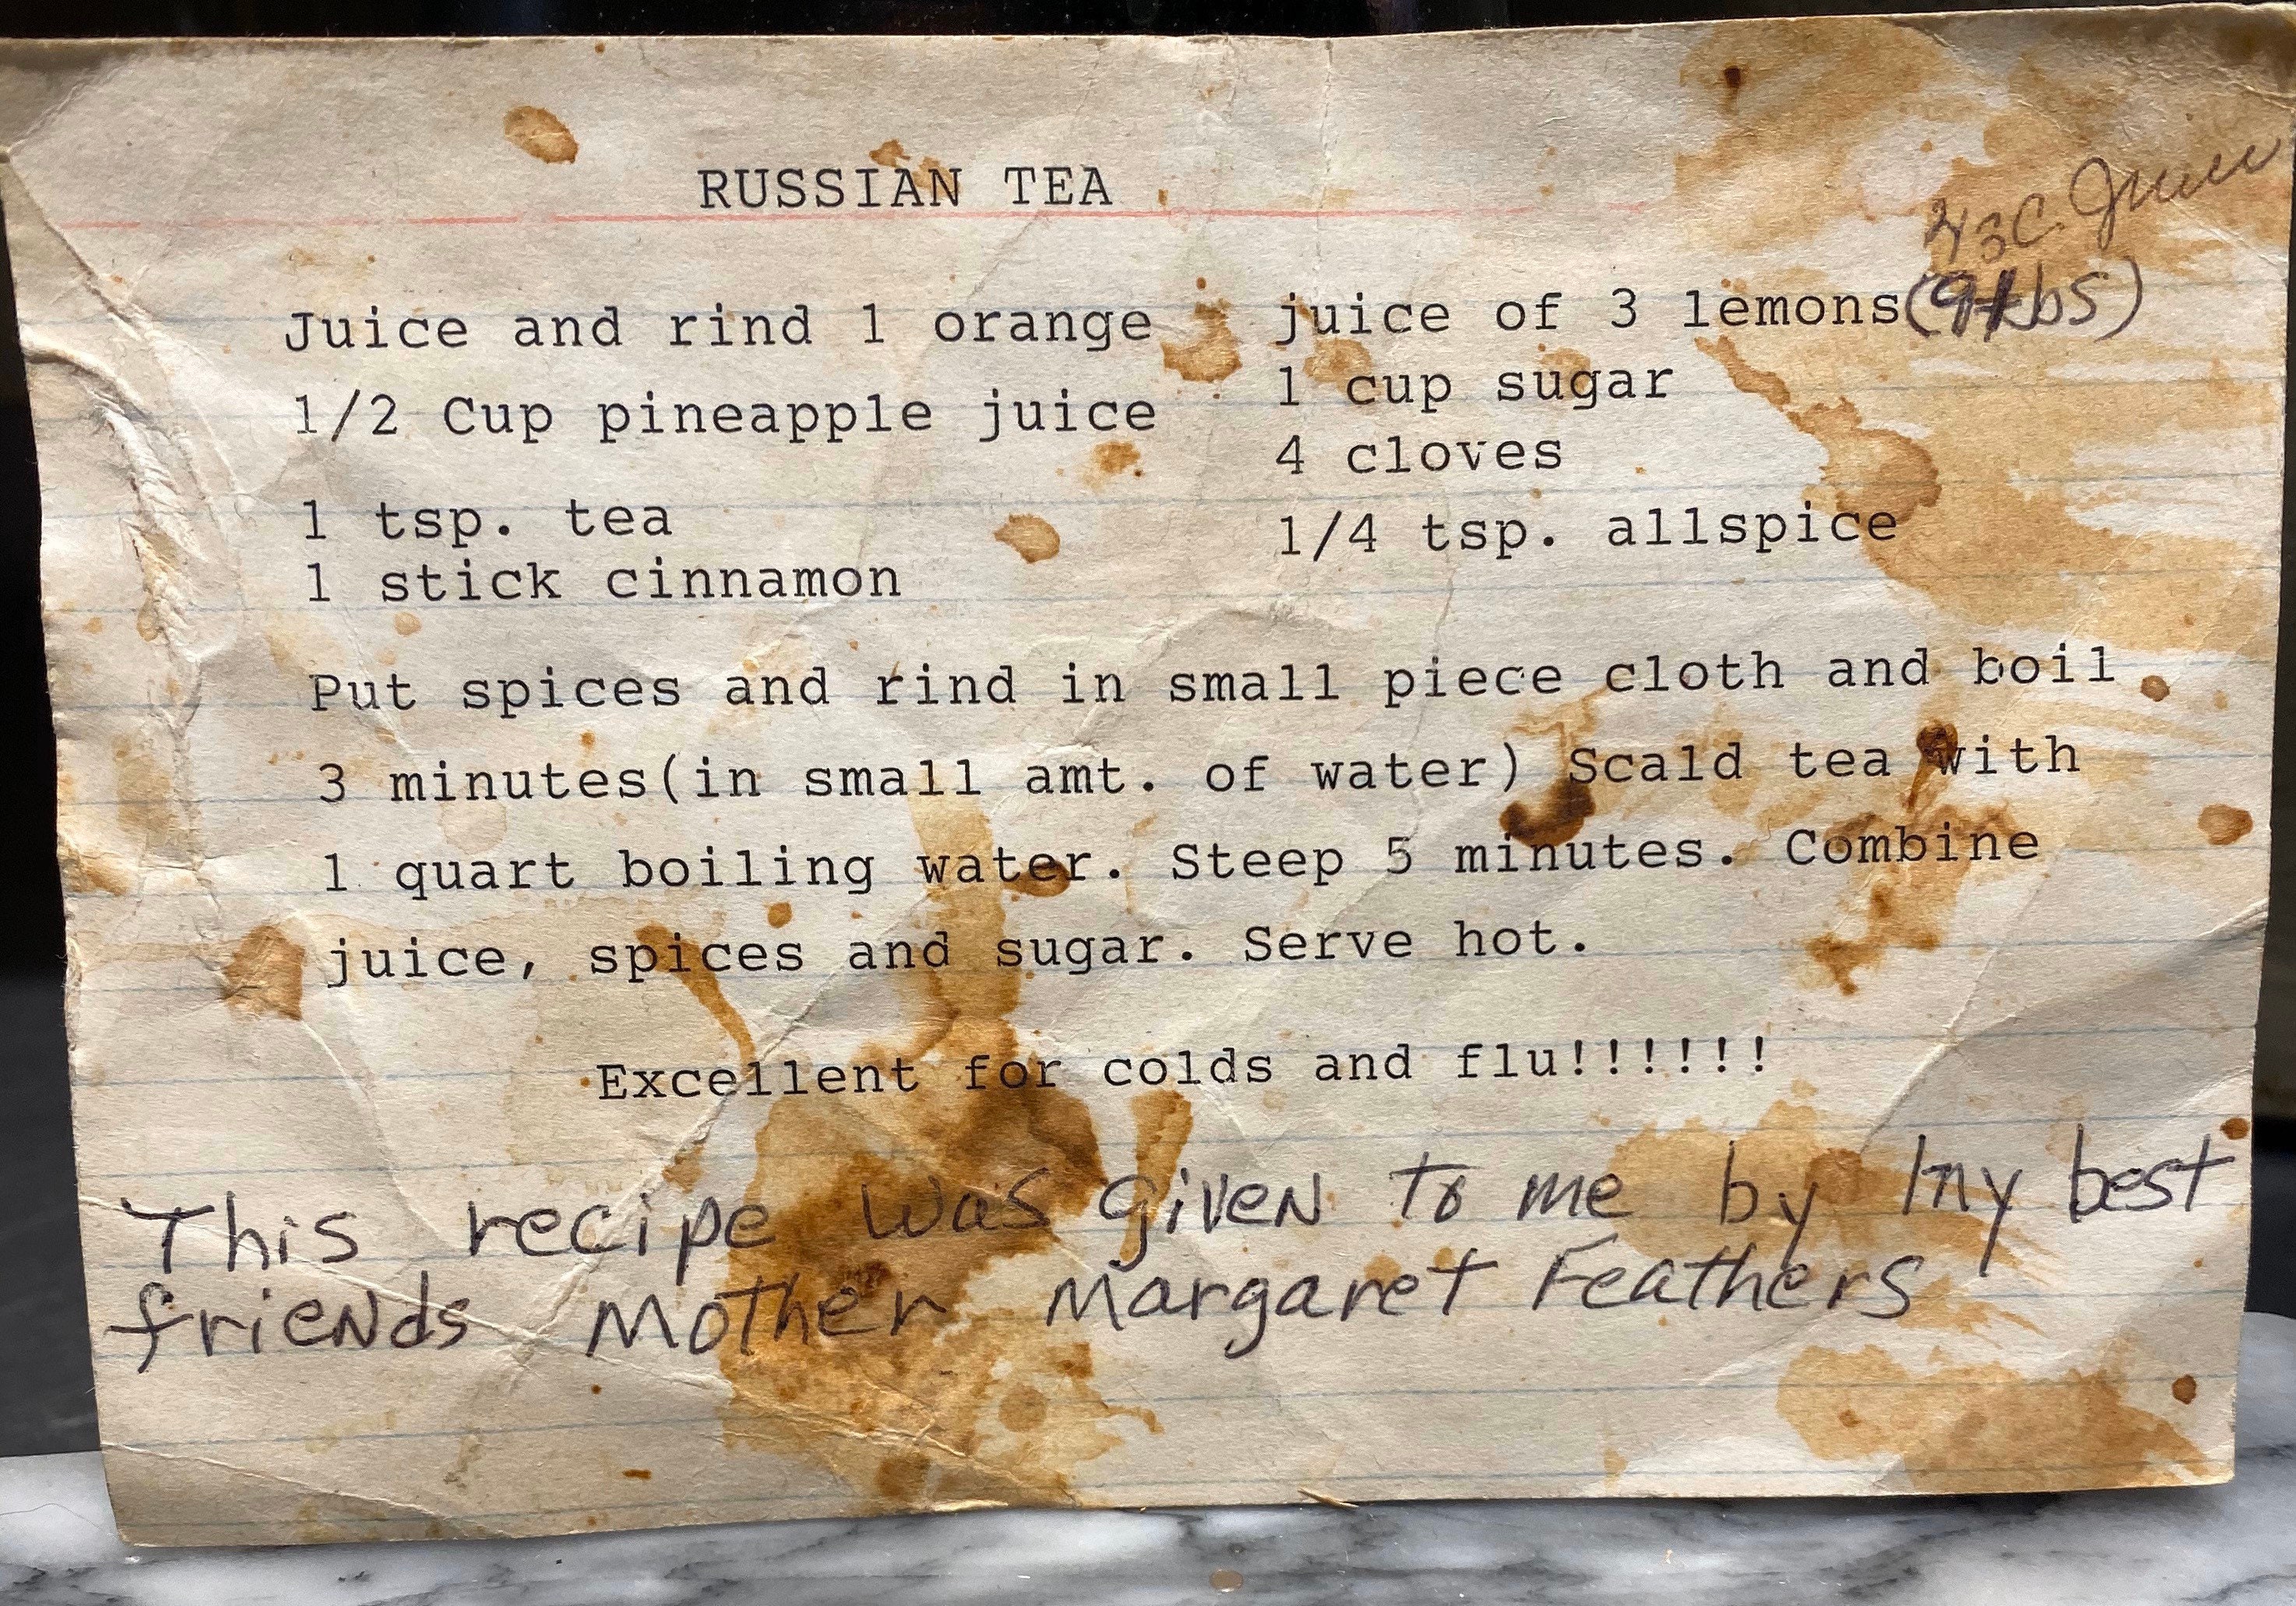 RUSSIAN TEA
Juice and rind 1 orange
1/2 Cup pineapple juice
1 tsp. tea
1 stick cinnamon
juice of 3 lemons (9tbs)
1 cup sugar
4 cloves
1/4 tsp. allspice
Put spices and rind in small piece cloth and boil
3 minutes(in small amt. of water) Scald tea with
1 quart boiling water. Steep 5 minutes. Combine
juice, spices and sugar. Serve hot.
Excellent for colds and flu!!!!!!
This recipe was given to me by my best
friends Mother Margaret Feathers